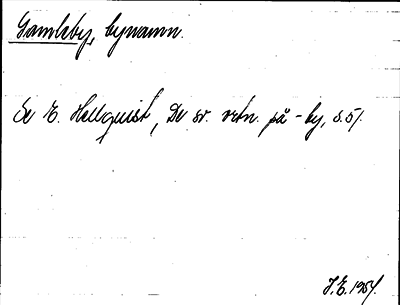 Gamleby, bynamn.
Se E. Hellquist, De sv. ortn. på -by, s. 51.
J.E. 1954.